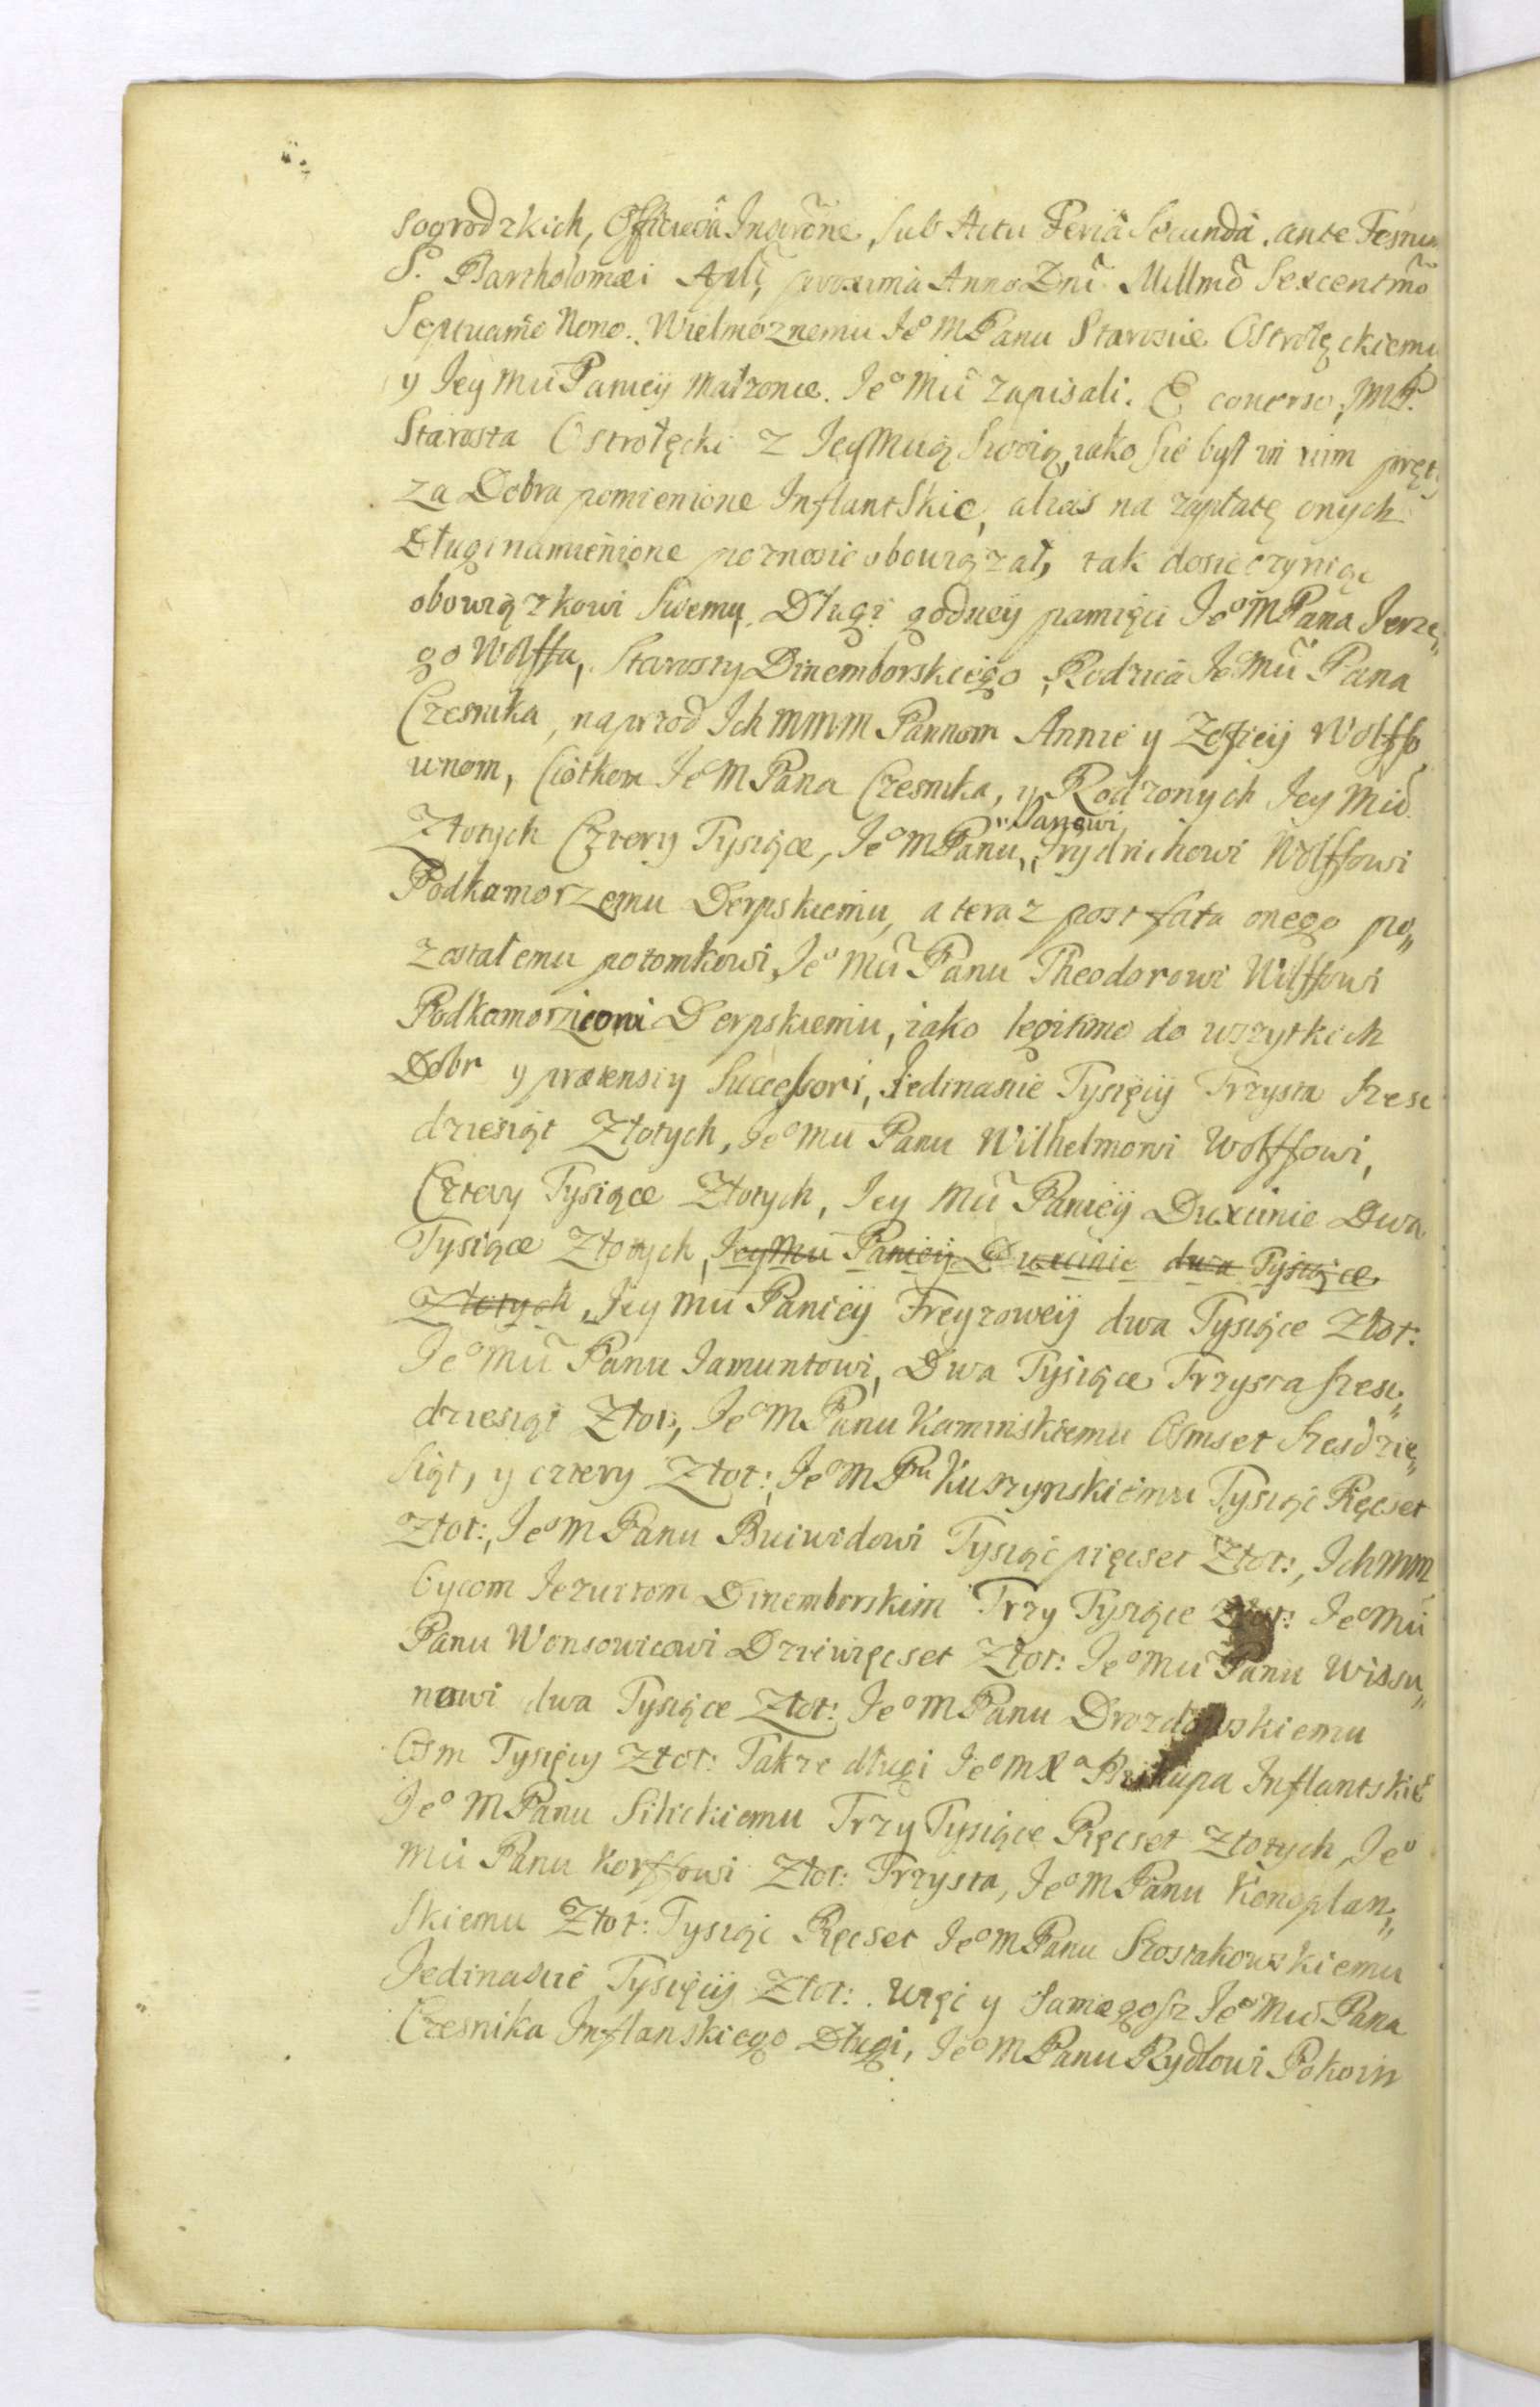 sogrodzkich, Officiosa Ingrõne, sub Actu Feriâ Secundâ, ante Festum
S. Bartholomæi Apli, proximâ Anno Dni Millmo Sexcentmo
Septuamo Nono. Wielmoznemu Jeº M Panu Staroscie Ostrołęckiemu
y Jey Mci Panieÿ Małzonce. Jeº Mci zapisali. E conerso, JMP.
Starosta Ostrołęcki z JeyMcią Swoią, iako sie był in vim pręt,
za Dobra pomienione Inflantskie, alias na zapłatę onych
Długi namienione poznosic obowiązał, tak dosic czyniąc
obowiązkowi Swemu, Długi godney pamięci Jeº M Pana Jerze„
go Wolffa, Starosty Dinemborskiego, Rodzica Jeº Mci Pana
Czesnika, naprzod Ich mmm Pannom Annie y Zofieÿ Wolffo
wnom, Ciotkom Jeº M Pana Czesnika, y Rodzonych Jey Mci
Złotych Cztery Tysiące, Jeº M Panu „Janowi„ Frydrichowi Wolffowi
Podkamorzemu Derpskiemu, a teraz post fata onego po„
zostałemu potomkowi, Jeº Mci Panu Theodorowi Wolffowi
Podkamorzicowi Derpskiemu, iako legitimo do wszytkich
Dobr y prætensiy Successori, Iedinascie Tysięcy Trzysta szesc
dziesiąt Złotych, Jeº Mci Panu Wilhelmowi Wolffowi,
Cztery Tysiące Złotych, Jey Mci Panieÿ Duxcinie Dwa
Tysiące Złotych, Jey Mci Panieÿ Duxcinie dwa Tysiące
Złotych, Jey Mci Panieÿ Freyzoweÿ dwa Tysiące Złot:
Jeº Mci Panu Jamuntowi, Dwa Tysiące Trzysta szesc„
dziesiąt Złot:, Jeº M Panu Kaminskiemu Osmset szesdzie„
siąt, y cztery Złot:, Jeº M Pnu Kuszynskiemu Tysiąc Pięcset
Złot:, Jeº M Panu Buiwidowi Tysiąc pięcset Złot:, Ich mm
Oycom Jezuitom Dinemborskim Trzy Tysiące Złot: Jeº Mci
Panu Wonsowicowi Dziewięcset Złot: Jeº Mci Panu Wissu„
nowi dwa Tysiące Złot: Jeº M Panu Drozdowskiemu
Osm Tysięcy Złot: Takze długi Jeº M Xa Biskupa Inflantskie
Jeº M Panu Silickiemu Trzy Tysiące Pięcset Złotych, Jeº
Mci Panu Korffowi Złot: Trzysta, Jeº M Panu Konoplan„
skiemu Złot: Tysiąc Pięcset Jeº M Panu Szostakowskiemu
Jedinascie Tysięcÿ Złot: Więc y samegosz Jeº Mci Pana
Czesnika Inflanskiego Długi, Jeº M Panu Rydlowi Pokoin